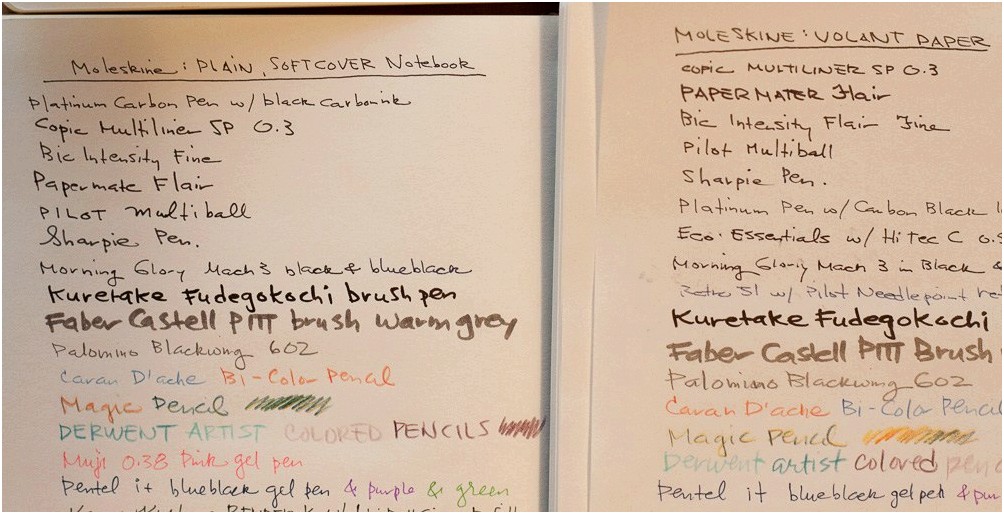 Moleskine: PLAIN, SOFTCOVER Notebook
Platinum Carbon Pen w/ black Carbonink
Copic Multiliner SP 0.3
Bic Intensity Fine
Papermate Flair
PILOT multiball
Sharpie Pen.
Morning Glory Mach 3 black & blueblack
Kuretake Fudegokochi brush pen
Faber Castell PITT brush warm grey
Palomino Blackwing 602
Caran D'ache Bi-Color Pencil
Magic Pencil
DERWENT ARTIST COLORED PENCILS
Muji 0.38 Pink gel pen
Pentel it blueblack gel pen & purple & green
MOLESKINE: VOLANT PAPER
COPIC MULTILINER SP 0.3
PAPERMATER Flair
Bic Intensity Flair Fine
Pilot Multiball
Sharpie Pen.
Platinum Pen w/ Carbon Black
Eco Essentials w/ Hi Tec C
Morning Glory Mach 3 in Black &
Retro 51 w/ Pilot Needlepoint
Kuretake Fudegokochi
Faber Castell PITT Brush
Palomino Blackwing 602
Caran D'ache Bi-Color Pencil
Magic Pencil
Derwent artist colored
Pentel it blueblack gel pen &